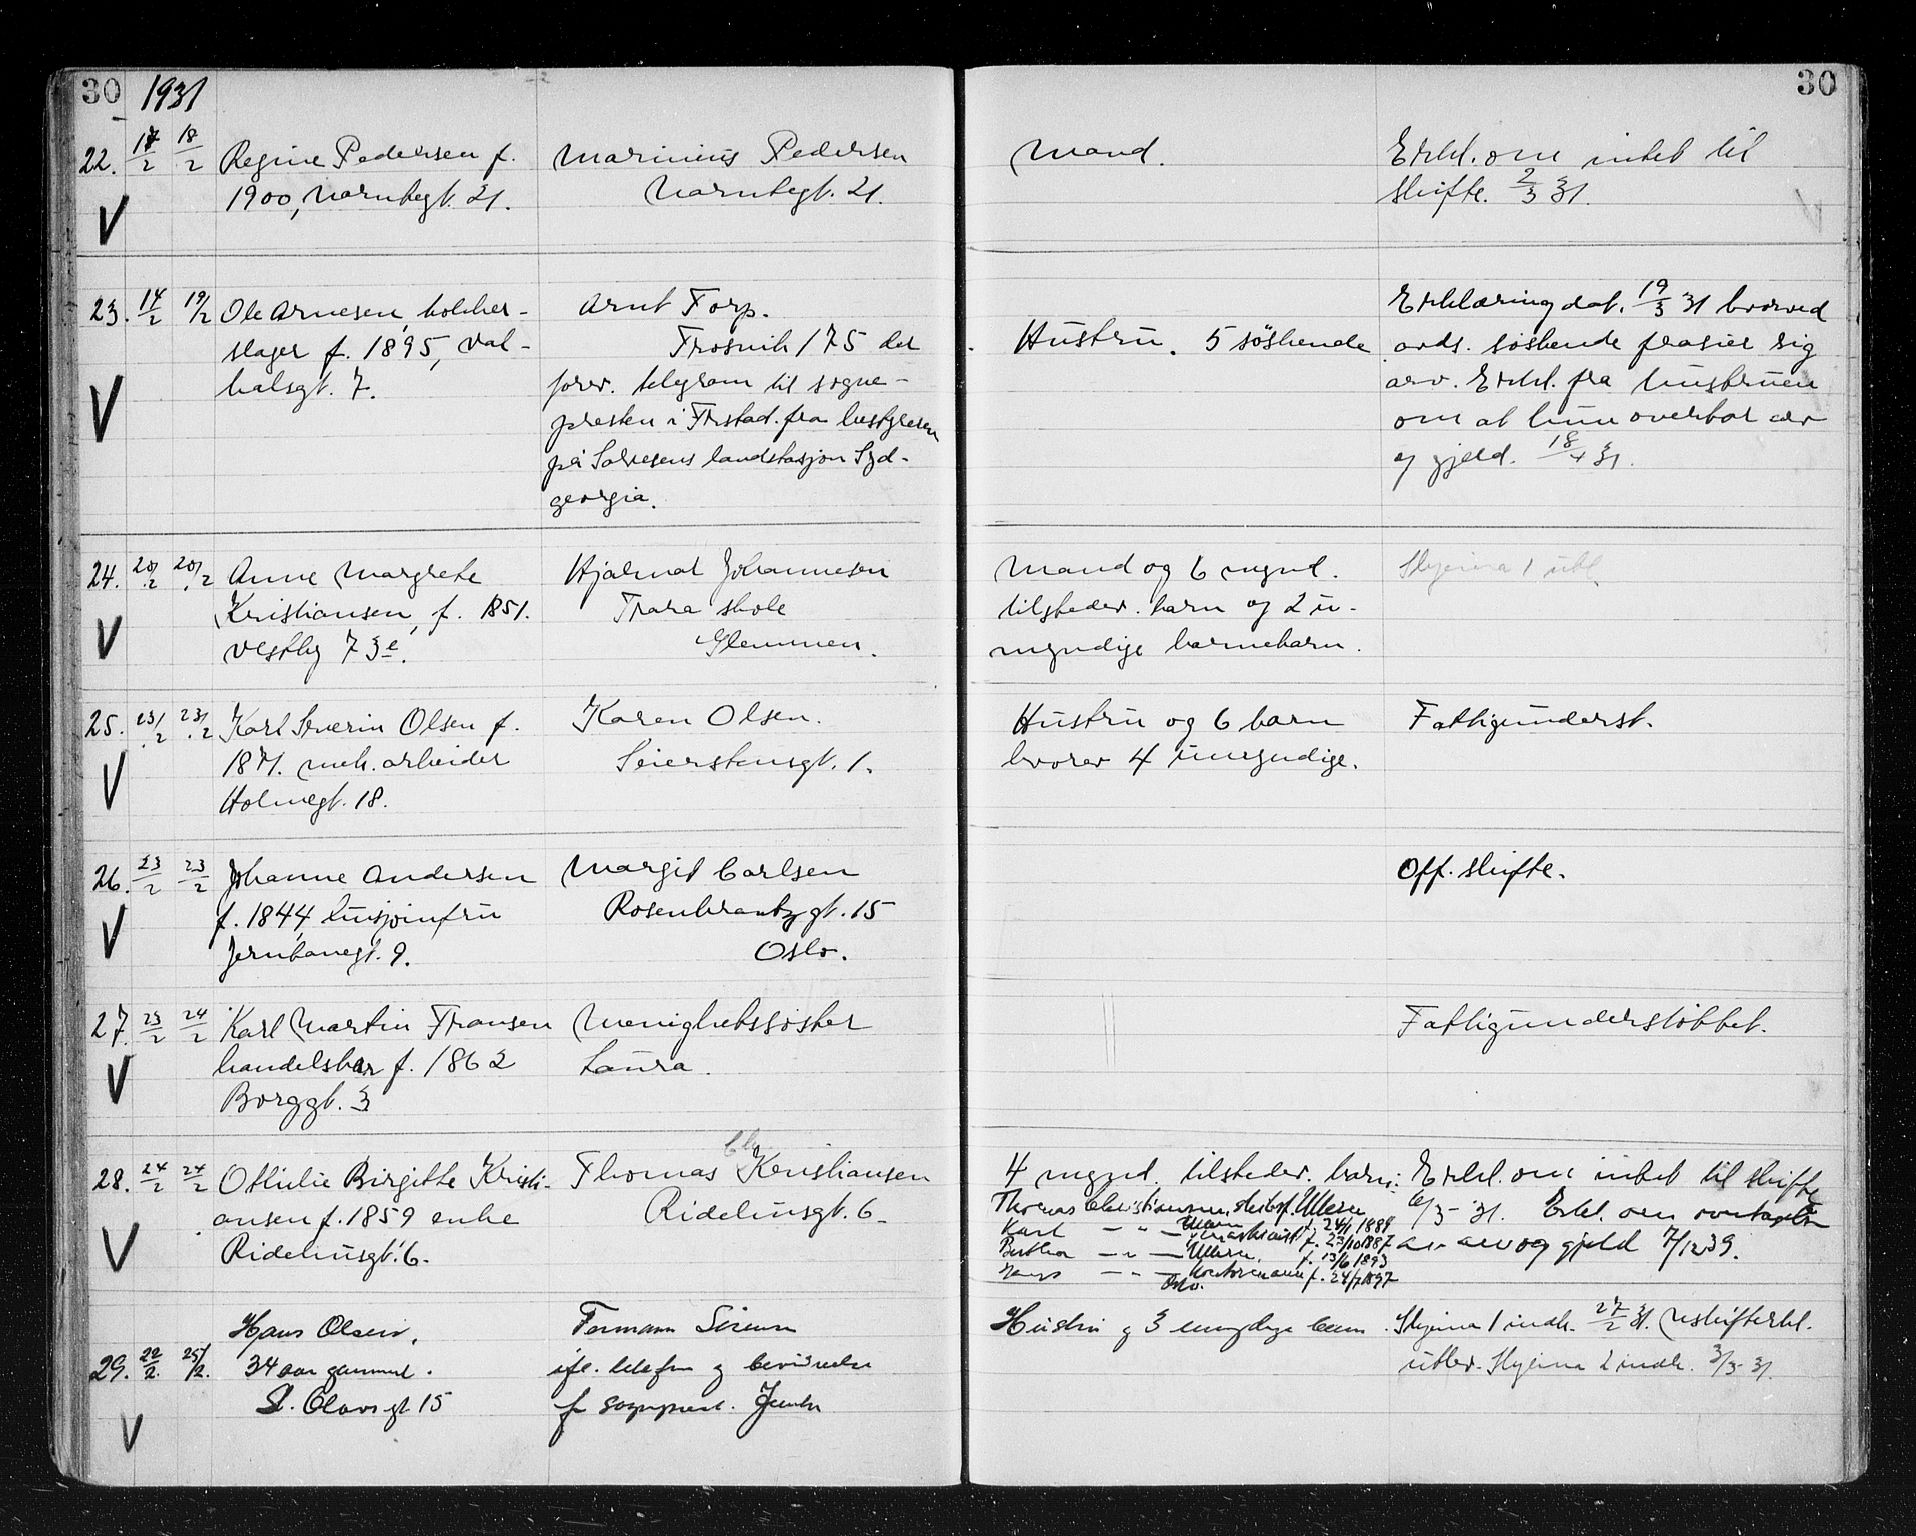 30 1931
30
22. 17/2 18/2 Regine Pedersen f. Marinius Pedersen Mand. Erkl. om intet til
1900, Varntegt. 21. Varntegt. 21. skifte. 2/3 31.
V
23. 14/2 19/2 Ole Arnesen, kokker- Arnt Torp. Erklæring dat. 19/3 31 hvorved
slager f. 1895, Val- Trosvik 175 der Hustru. 5 søskende avds. søskende frasier sig
halsgt. 7. forev. telegram til sogne- arv. Erkl. fra hustruen
V presten i Frstad. fra bestyreren om at hun overtar arv
på Salvesens landstasjon Syd- og gjeld. 18/4 31.
georgia.
24. 20/2 20/2 Anne Margrete Hjalmar Johannesen Mand og 6 mynd. Skjema 1 utl.
Kristiansen, f. 1851. Trara skole tilstedev. barn og 2 u-
V Vestby 73e. Glemmen. myndige barnebarn.
25. 23/2 23/2 Karl Severin Olsen f. Karen Olsen. Hustru og 6 barn Fattigunderst.
1871. mek. arbeider Seierstensgt. 1. hvorav 4 umyndige.
V Holmegt. 18.
26. 23/2 23/2 Johanne Andersen Margit Carlsen Off. skifte.
f. 1844, husjomfru Rosenkrantzgt. 15
V Jernbanegt. 9. Oslo.
27. 23/2 24/2 Karl Martin Fransen Menighetssøster Fattigunderstøttet.
handelskar f. 1862 Laura.
V Borggt. 3
28. 24/2 24/2 Ottilie Birgitte Kristi- Thomas Kristiansen 4 mynd. tilstedev. barn: Erkl. om intet til skifte
ansen f. 1859 enke Ridehusgt. 6. Thomas Christiansen, Ullern f. 24/1 1889 6/3-31. Erkl. om overtagelse
V Ridehusgt. 6. Karl — " — f. 23/10 1887 av arv og gjeld 7/12 39.
Berthea — " — Ullern. f. 13/6 1893
— " — Kontormann f. 24/7 1897
Oslo.
Hans Olsen. Hustru og 3 umyndige barn. Skjema 1 indk. 27/2 31. Uskifteerkl.
29. 22/2. 25/2. 34 aar gammel. ifl. telefon og bevidnelse utlev. Skjema 2 indk. 3/3-31.
St. Olavsgt 15 fr sogneprest.
V